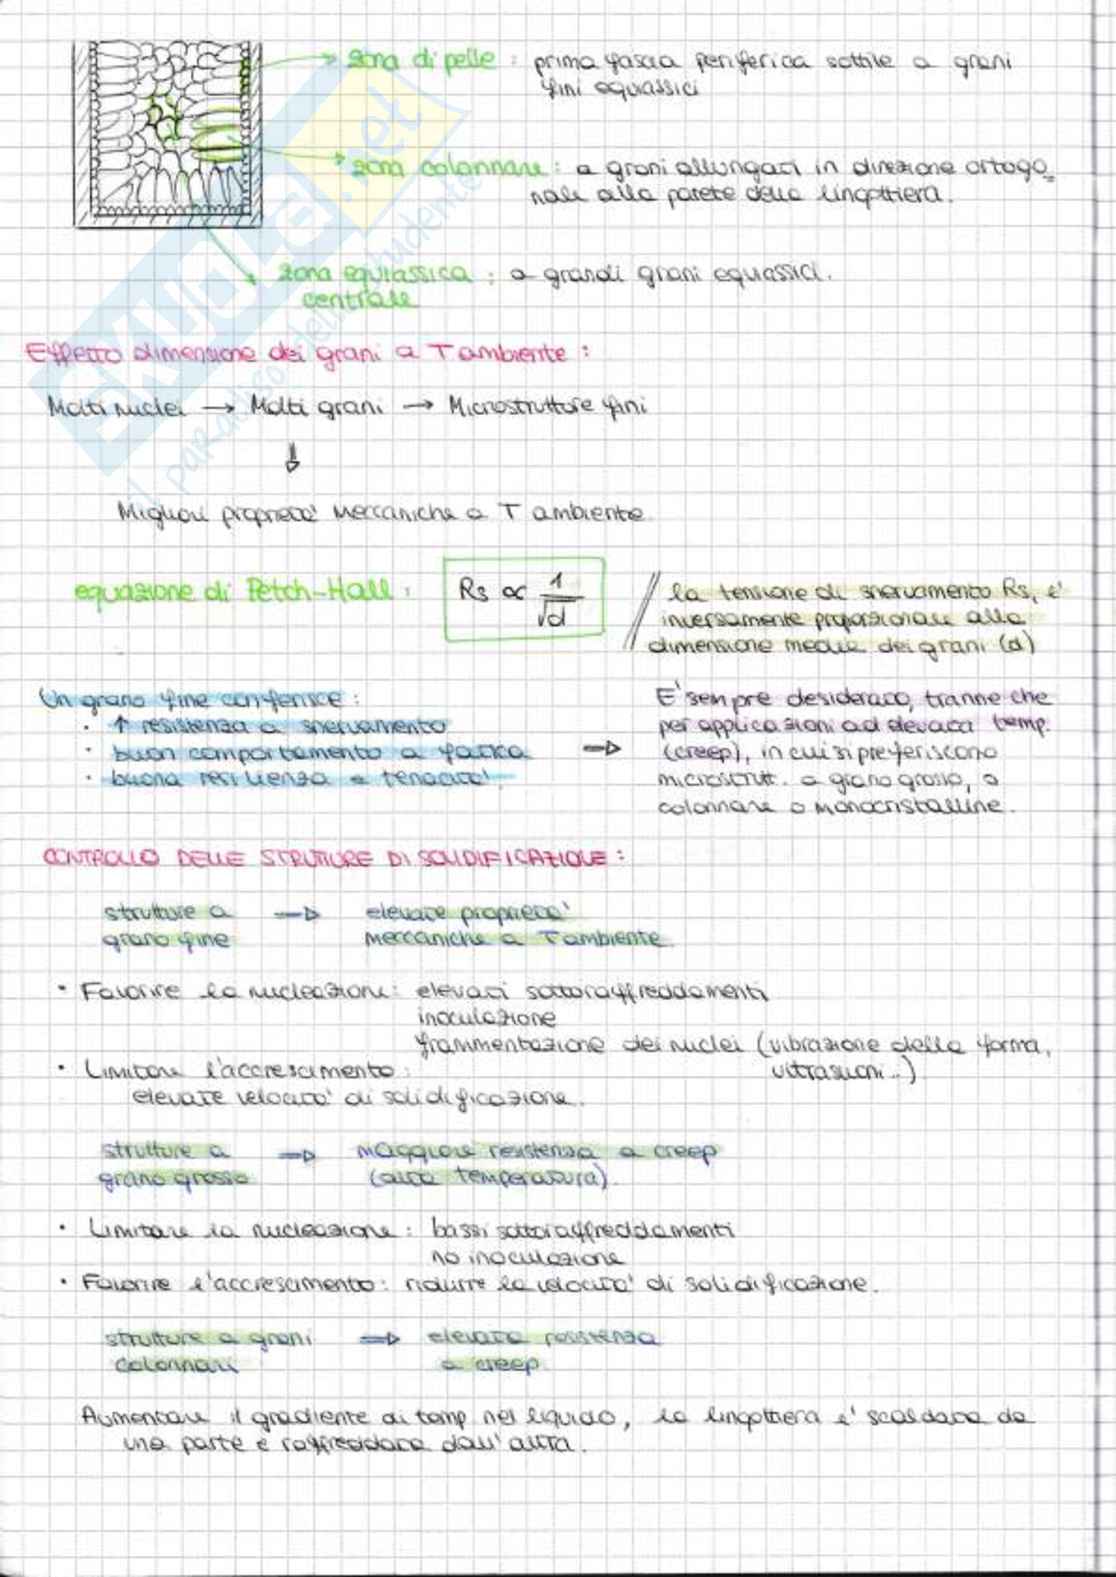 zona di pelle : prima fascia periferica sottile a grani
fini equiassici
zona colonnare : a grani allungati in direzione ortogo=
nale alla parete della lingottiera.
zona equiassica : a grandi grani equiassici.
centrale
Effetto dimensione dei grani a T ambiente :
Molti nuclei → Molti grani → Microstrutture fini
↓
Migliori proprietà meccaniche a T ambiente
equazione di Petch-Hall : Rs ∝ 1/√d // la tensione di snervamento Rs, è
inversamente proporzionale alla
dimensione media dei grani (d)
Un grano fine conferisce :
· ↑ resistenza a snervamento
· buon comportamento a fatica
· buona resilienza e tenacità.
⇒ E' sempre desiderato, tranne che
per applicazioni ad elevata temp.
(creep), in cui si preferiscono
microstrutt. a grano grosso, o
colonnare o monocristalline.
CONTROLLO DELLE STRUTTURE DI SOLIDIFICAZIONE :
strutture a ⇒ elevate proprietà
grano fine meccaniche a T ambiente.
· Favorire la nucleazione : elevati sottoraffreddamenti
inoculazione
frammentazione dei nuclei (vibrazione della forma,
ultrasuoni..)
· Limitare l'accrescimento :
elevate velocità di solidificazione.
strutture a ⇒ maggiore resistenza a creep
grano grosso (alta temperatura).
· Limitare la nucleazione : bassi sottoraffreddamenti
no inoculazione
· Favorire l'accrescimento : ridurre la velocità di solidificazione.
strutture a grani ⇒ elevata resistenza
colonnari a creep.
Aumentare il gradiente di temp nel liquido, la lingottiera e' scaldata da
una parte e raffreddata dall'altra.
SKUOLA.net
il paradiso dello studente